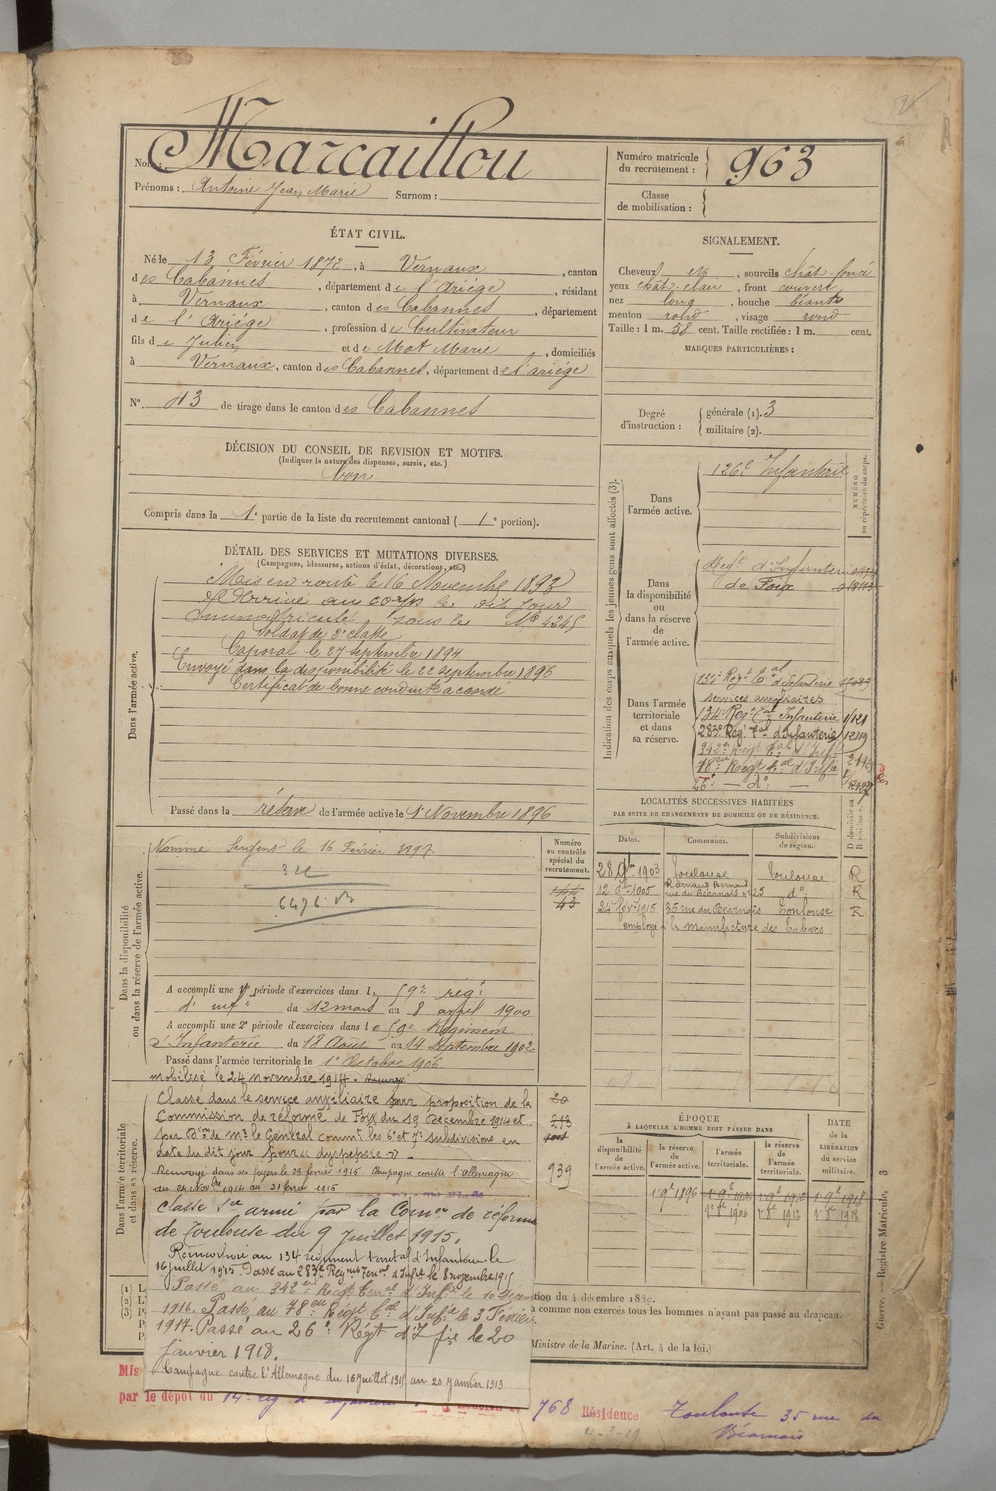 Nom : Marcaillou
Prénoms : Antoine Jean Marie Surnom :
Numéro matricule du recrutement : 963
Classe de mobilisation :
ÉTAT CIVIL.
Né le 13 Février 1872, à Vernaux, canton
des Cabannes, département de l'Ariège, résidant
à Vernaux, canton des Cabannes, département
de l'Ariège, profession de Cultivateur
fils de Julien et de Mot Marie, domiciliés
à Vernaux, canton des Cabannes, département de l'ariège
N° 43 de tirage dans le canton des Cabannes
SIGNALEMENT.
Cheveux, sourcils chât. foncé
yeux chât. clair, front couvert
nez long, bouche béante
menton rond, visage rond
Taille : 1 m. 58 cent. Taille rectifiée : 1 m. cent.
MARQUES PARTICULIÈRES :
Degré d'instruction : générale (1). 3
militaire (2).
DÉCISION DU CONSEIL DE REVISION ET MOTIFS.
(Indiquer la nature des dispenses, sursis, etc.)
bon
Compris dans la 1e partie de la liste du recrutement cantonal ( 1e portion).
DÉTAIL DES SERVICES ET MUTATIONS DIVERSES.
(Campagnes, blessures, actions d'éclat, décorations, etc.)
Dans l'armée active.
Mis en route le 16 Novembre 1893
& Arrivé au corps le dit jour
Immatriculé sous le N° 4245
Soldat de 2e classe
Caporal le 27 septembre 1894
Envoyé dans la disponibilité le 22 septembre 1896
Certificat de bonne conduite accordé
Passé dans la réserve de l'armée active le 1 Novembre 1896
Indication des corps auxquels les jeunes gens sont affectés (3).
NUMÉRO au répertoire du corps.
Dans l'armée active.
126e Infanterie
Dans la disponibilité ou dans la réserve de l'armée active.
Regt d'Infanterie
de Foix
Dans l'armée territoriale et dans sa réserve.
services auxiliaires
134e Regt Tal Infanterie
283e Regt Tal d'Infanterie
342e Regt Tal d'Infie
78eme Regt Tal d'Infie
26e — do —
LOCALITÉS SUCCESSIVES HABITÉES
PAR SUITE DE CHANGEMENTS DE DOMICILE OU DE RÉSIDENCE.
Dates. Communes. Subdivisions de région.
28 9bre 1903 Toulouse Toulouse R
12 1905 rue du Béarnais 25 do R
24 fév. 1915 35 rue du Béarnais Toulouse R
employé à la manufacture des Tabacs
Dans la disponibilité ou dans la réserve de l'armée active.
Nommé Sergent le 16 Février 1897.
Numéro au contrôle spécial du recrutement.
322
A accompli une 1re période d'exercices dans le 59e régt
d'inf. du 12 mars au 8 avril 1900
A accompli une 2e période d'exercices dans le 59e Régiment
d'Infanterie du 18 Août au 14 septembre 1902
Passé dans l'armée territoriale le 1er Octobre 1906
mobilisé le 24 novembre 1914.
Dans l'armée territoriale et dans sa réserve.
Classé dans le service auxiliaire sur proposition de la
Commission de réforme de Foix du 19 décembre 1914 et
par Don de Mr le Général commt les 6e et 7e subdivisions en
date du dit jour pour « dyspepsie ».
Renvoyé dans ses foyers le 23 février 1915 Campagne contre l'Allemagne
du 24 Novbre 1914 au 21 février 1915
939
Classé sce armé par la Comon de réforme
de Toulouse du 9 juillet 1915.
Réincorporé au 134 régiment territal d'Infanterie le
16 juillet 1915. Passé au 283e Regment Teral d'Infie le 8 novembre 1915
Passé au 342e Regt Terral d'Infie le 10 Décembre
1916. Passé au 78eme Regt tal d'Infie le 3 Février
1917. Passé au 26e Régt d'Ifie le 20
janvier 1918.
Campagne contre l'Allemagne du 16 juillet 1915 au 20 janvier 1919
ÉPOQUE
À LAQUELLE L'HOMME DOIT PASSER DANS
la disponibilité de l'armée active.
la réserve de l'armée active.
l'armée territoriale.
la réserve de l'armée territoriale.
DATE de la LIBÉRATION du service militaire.
1 9e 1896
1 8e 1906 1 8e 1912 1 8e 1918
tion du 4 décembre 1889.
à comme non exercés tous les hommes n'ayant pas passé au drapeau.
Ministre de la Marine. (Art. 4 de la loi.)
Guerre. — Registre Matricule. 3
Mis
par le dépôt du 768 Résidence Toulouse 35 rue du
Béarnais